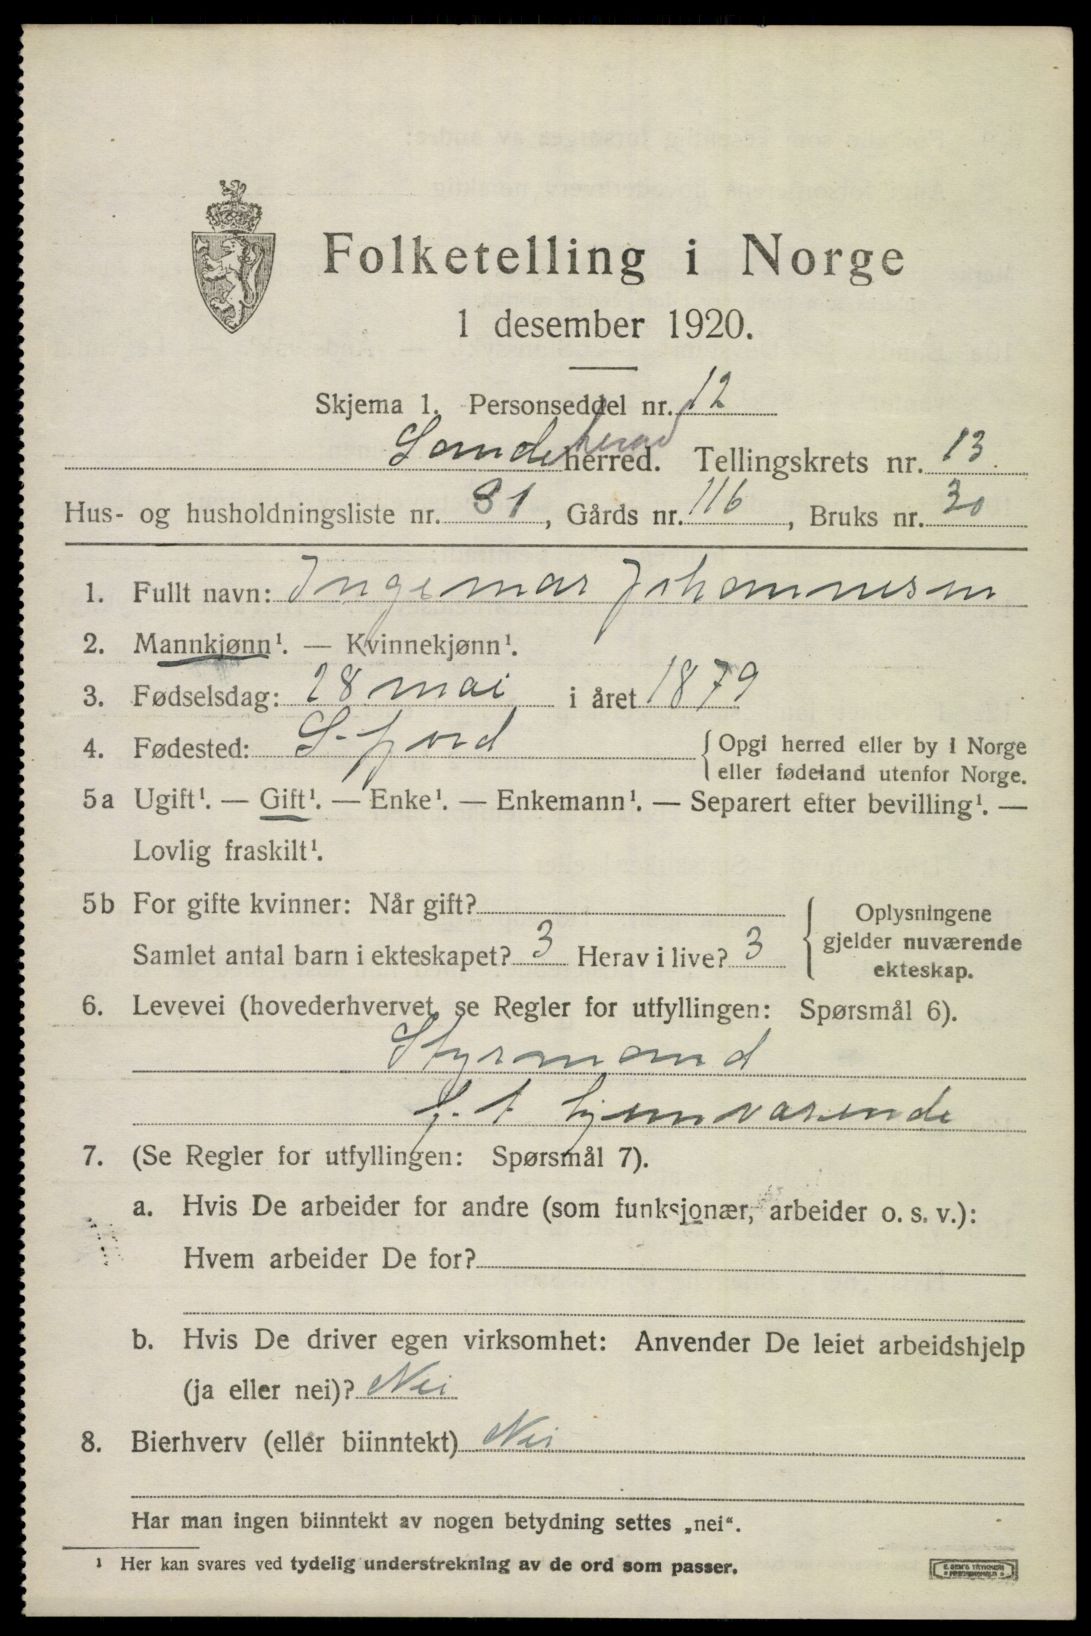 Folketelling i Norge
1 desember 1920.
Skjema 1. Personseddel nr. 12
Sandeherad herred. Tellingskrets nr. 13.
Hus- og husholdningsliste nr. 81, Gårds nr. 116, Bruks nr. 30
1. Fullt navn: Ingemar Johannesen
2. Mannkjønn¹. — Kvinnekjønn¹.
3. Fødselsdag: 28 mai i året 1879
4. Fødested: S-fjord { Opgi herred eller by i Norge
eller fødeland utenfor Norge.
5a Ugift¹. — Gift¹. — Enke¹. — Enkemann¹. — Separert efter bevilling¹. —
Lovlig fraskilt¹.
5b For gifte kvinner: Når gift?
Samlet antal barn i ekteskapet? 3 Herav i live? 3
{ Oplysningene
gjelder nuværende
ekteskap.
6. Levevei (hovederhvervet, se Regler for utfyllingen: Spørsmål 6).
Styrmand
f. t hjemvarende
7. (Se Regler for utfyllingen: Spørsmål 7).
a. Hvis De arbeider for andre (som funksjonær, arbeider o. s. v.):
Hvem arbeider De for?
b. Hvis De driver egen virksomhet: Anvender De leiet arbeidshjelp
(ja eller nei)? Nei
8. Bierhverv (eller biinntekt) Nei
Har man ingen biinntekt av nogen betydning settes „nei“.
¹ Her kan svares ved tydelig understrekning av de ord som passer.